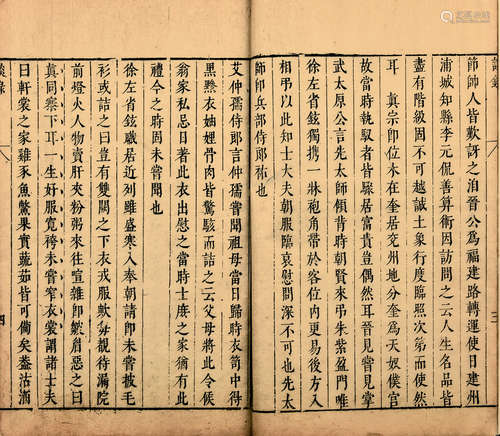 談錄
三
節帥人皆歎訝之洎晉公為福建路轉運使日建州
浦城知縣李元侃善算術因訪問之云人生名品皆
盡有階級固不可越誠土象行度臨照次第而使然
耳　真宗卽位木在奎居兖州地分奎為天奴僕宮
故當時執馭者皆驟居富貴豈偶然耳晉見嘗見掌
武太原公言先太師傾背時朝賢來弔朱紫盈門唯
徐左省鉉獨携一麻袍角帶於客位内更易後方入
相弔以此知士大夫朝服臨哀慰問深不可也先太
師卽兵部侍郞祐也
艾仲孺侍郞言仲孺嘗聞祖母當日歸時衣笥中得
黑黲衣妯娌骨肉皆驚駭而詰之云父母將此令候
翁家私忌日著此衣出慰之當時士庶之家猶有此
禮今之時固未嘗聞也
徐左省鉉職居近列雖盛寒入奉朝請卽未嘗披毛
衫或詰之曰豈有雙闕之下衣戎服歟每覩待漏院
前燈火人物賣肝夾粉粥來往喧雜卽皺眉惡之曰
真同寨下耳一生好服寬袴未嘗窄衣裳謂諸士夫
曰軒裳之家雞豕魚鱉果實蔬茹皆可備矣盍沽酒
談錄
四